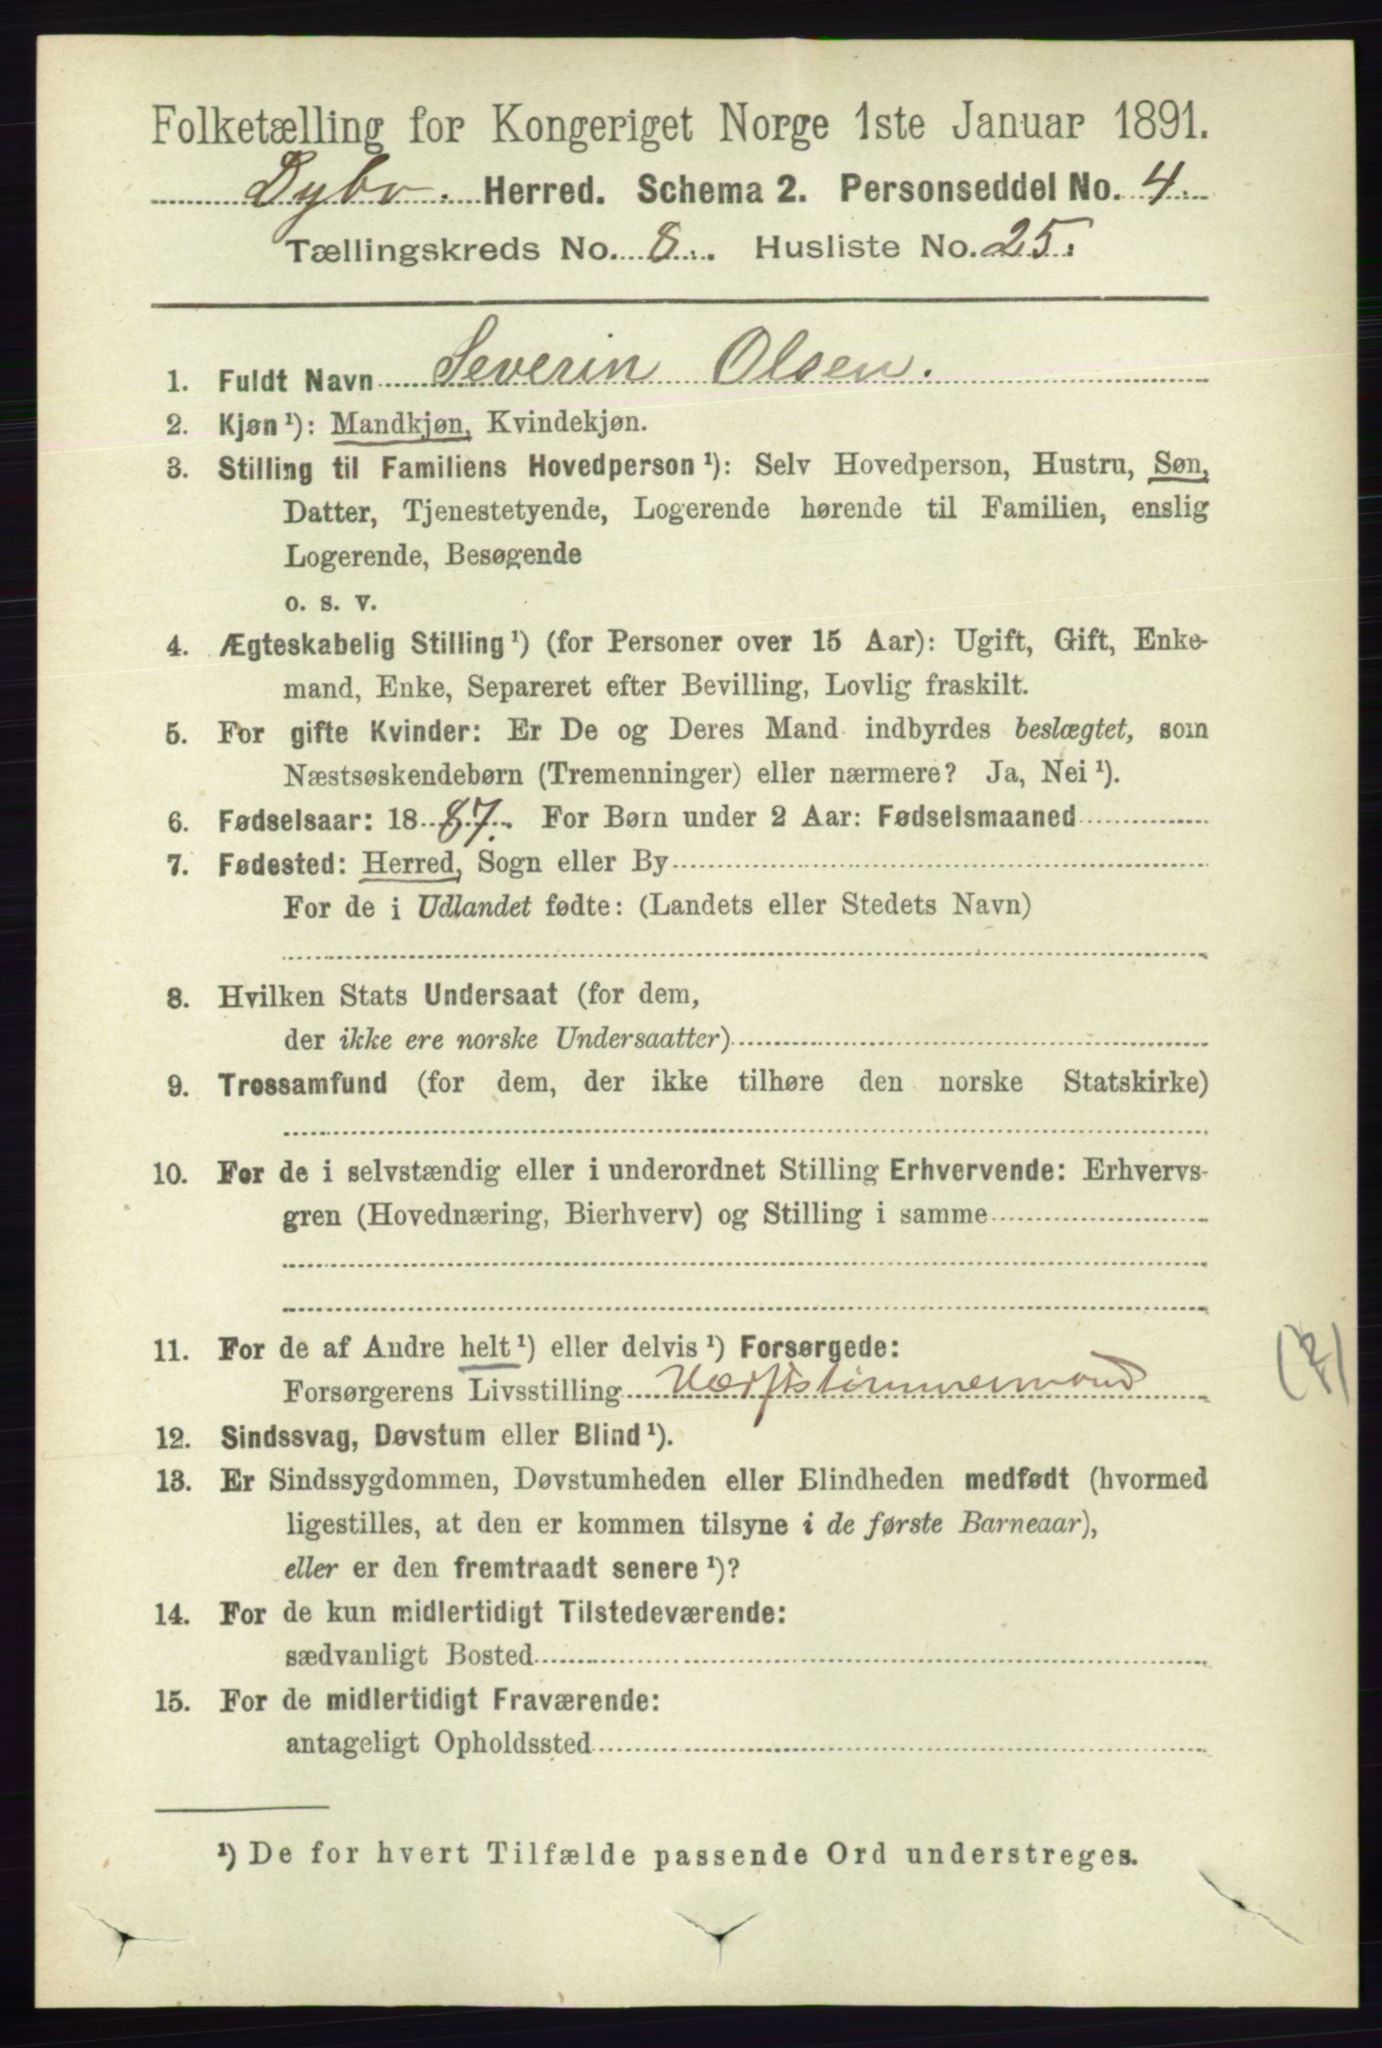 Folketælling for Kongeriget Norge 1ste Januar 1891.
Dybø. Herred. Schema 2. Personseddel No. 4.
Tællingskreds No. 8. Husliste No. 25.
1. Fuldt Navn Severin Olsen.
2. Kjøn¹): Mandkjøn, Kvindekjøn.
3. Stilling til Familiens Hovedperson¹): Selv Hovedperson, Hustru, Søn,
Datter, Tjenestetyende, Logerende hørende til Familien, enslig
Logerende, Besøgende
o. s. v.
4. Ægteskabelig Stilling¹) (for Personer over 15 Aar): Ugift, Gift, Enke-
mand, Enke, Separeret efter Bevilling, Lovlig fraskilt.
5. For gifte Kvinder: Er De og Deres Mand indbyrdes beslægtet, som
Næstsøskendebørn (Tremenninger) eller nærmere? Ja, Nei¹).
6. Fødselsaar: 1887. For Børn under 2 Aar: Fødselsmaaned
7. Fødested: Herred, Sogn eller By
For de i Udlandet fødte: (Landets eller Stedets Navn)
8. Hvilken Stats Undersaat (for dem,
der ikke ere norske Undersaatter)
9. Trossamfund (for dem, der ikke tilhøre den norske Statskirke)
10. For de i selvstændig eller i underordnet Stilling Erhvervende: Erhvervs-
gren (Hovednæring, Bierhverv) og Stilling i samme
11. For de af Andre helt¹) eller delvis¹) Forsørgede:
Forsørgerens Livsstilling Værftstømmermand
12. Sindssvag, Døvstum eller Blind¹).
13. Er Sindssygdommen, Døvstumheden eller Blindheden medfødt (hvormed
ligestilles, at den er kommen tilsyne i de første Barneaar),
eller er den fremtraadt senere¹)?
14. For de kun midlertidigt Tilstedeværende:
sædvanligt Bosted
15. For de midlertidigt Fraværende:
antageligt Opholdssted
¹) De for hvert Tilfælde passende Ord understreges.